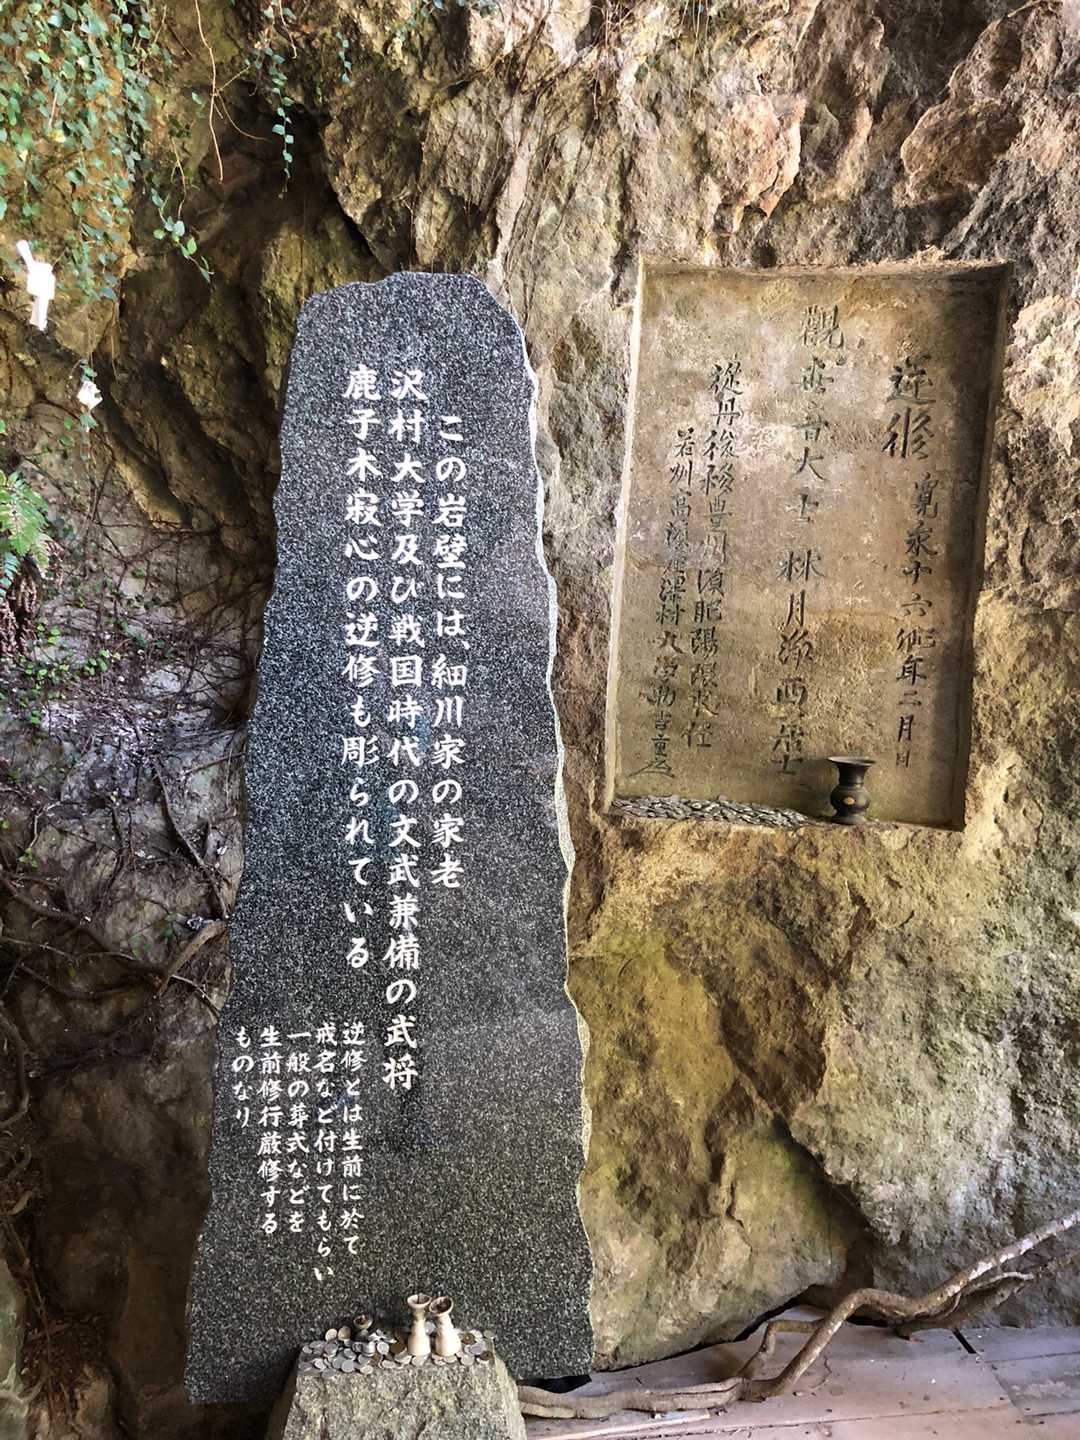 逆修 寛永十六 年二月日
觀世音大士 林月 西居士
從丹後移豊州 肥陽 住
若州高濱 津村 吉重
この岩壁には、細川家の家老
沢村大学及び戦国時代の文武兼備の武将
鹿子木寂心の逆修も彫られている
逆修とは生前に於て
戒名など付けてもらい
一般の葬式などを
生前修行厳修する
ものなり